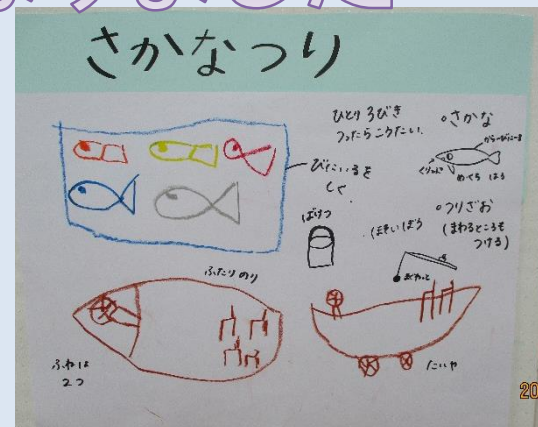 さかなつり
ひとり3びき
つったらこうたい
さかな
からーびにーる
くりっぷ
めくら はる
びにいるを
しく
ばけつ
つりざお
(まわるところも
つける)
ふたりのり
ふねは
2つ
たいや
20